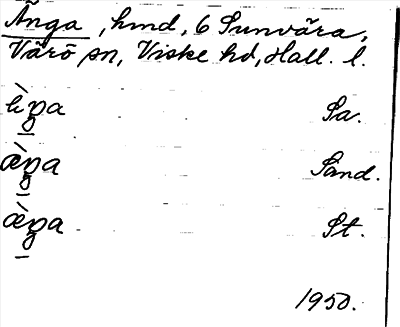 Änga, hmd, 6 Sunvära,
Värö sn, Viske hd, Hall. l.
Sa.
Sand.
St.
1950.